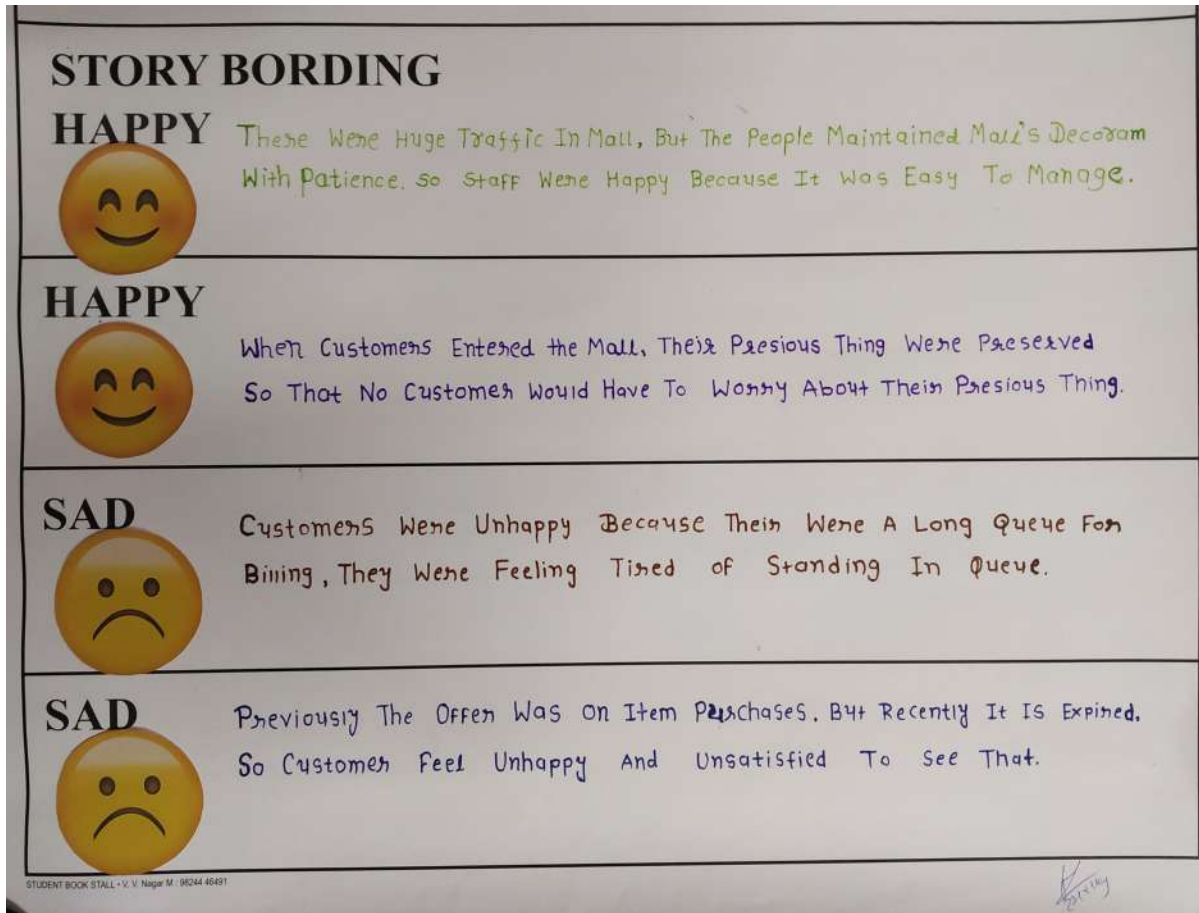 STORY BORDING
HAPPY
There Were Huge Traffic In Mall, But The People Maintained Mall's Decoram
With Patience. So Staff Were Happy Because It Was Easy To Manage.
HAPPY
When Customers Entered the Mall, Their Presious Thing Were Preserved
So That No Customer Would Have To Worry About Their Presious Thing.
SAD
Customers Were Unhappy Because Their Were A Long Queue For
Billing, They Were Feeling Tired of Standing In Queue.
SAD
Previously The Offer Was On Item Purchases. But Recently It Is Expired.
So Customer Feel Unhappy And Unsatisfied To See That.
STUDENT BOOK STALL • V. V. Nagar M : 98244 46491